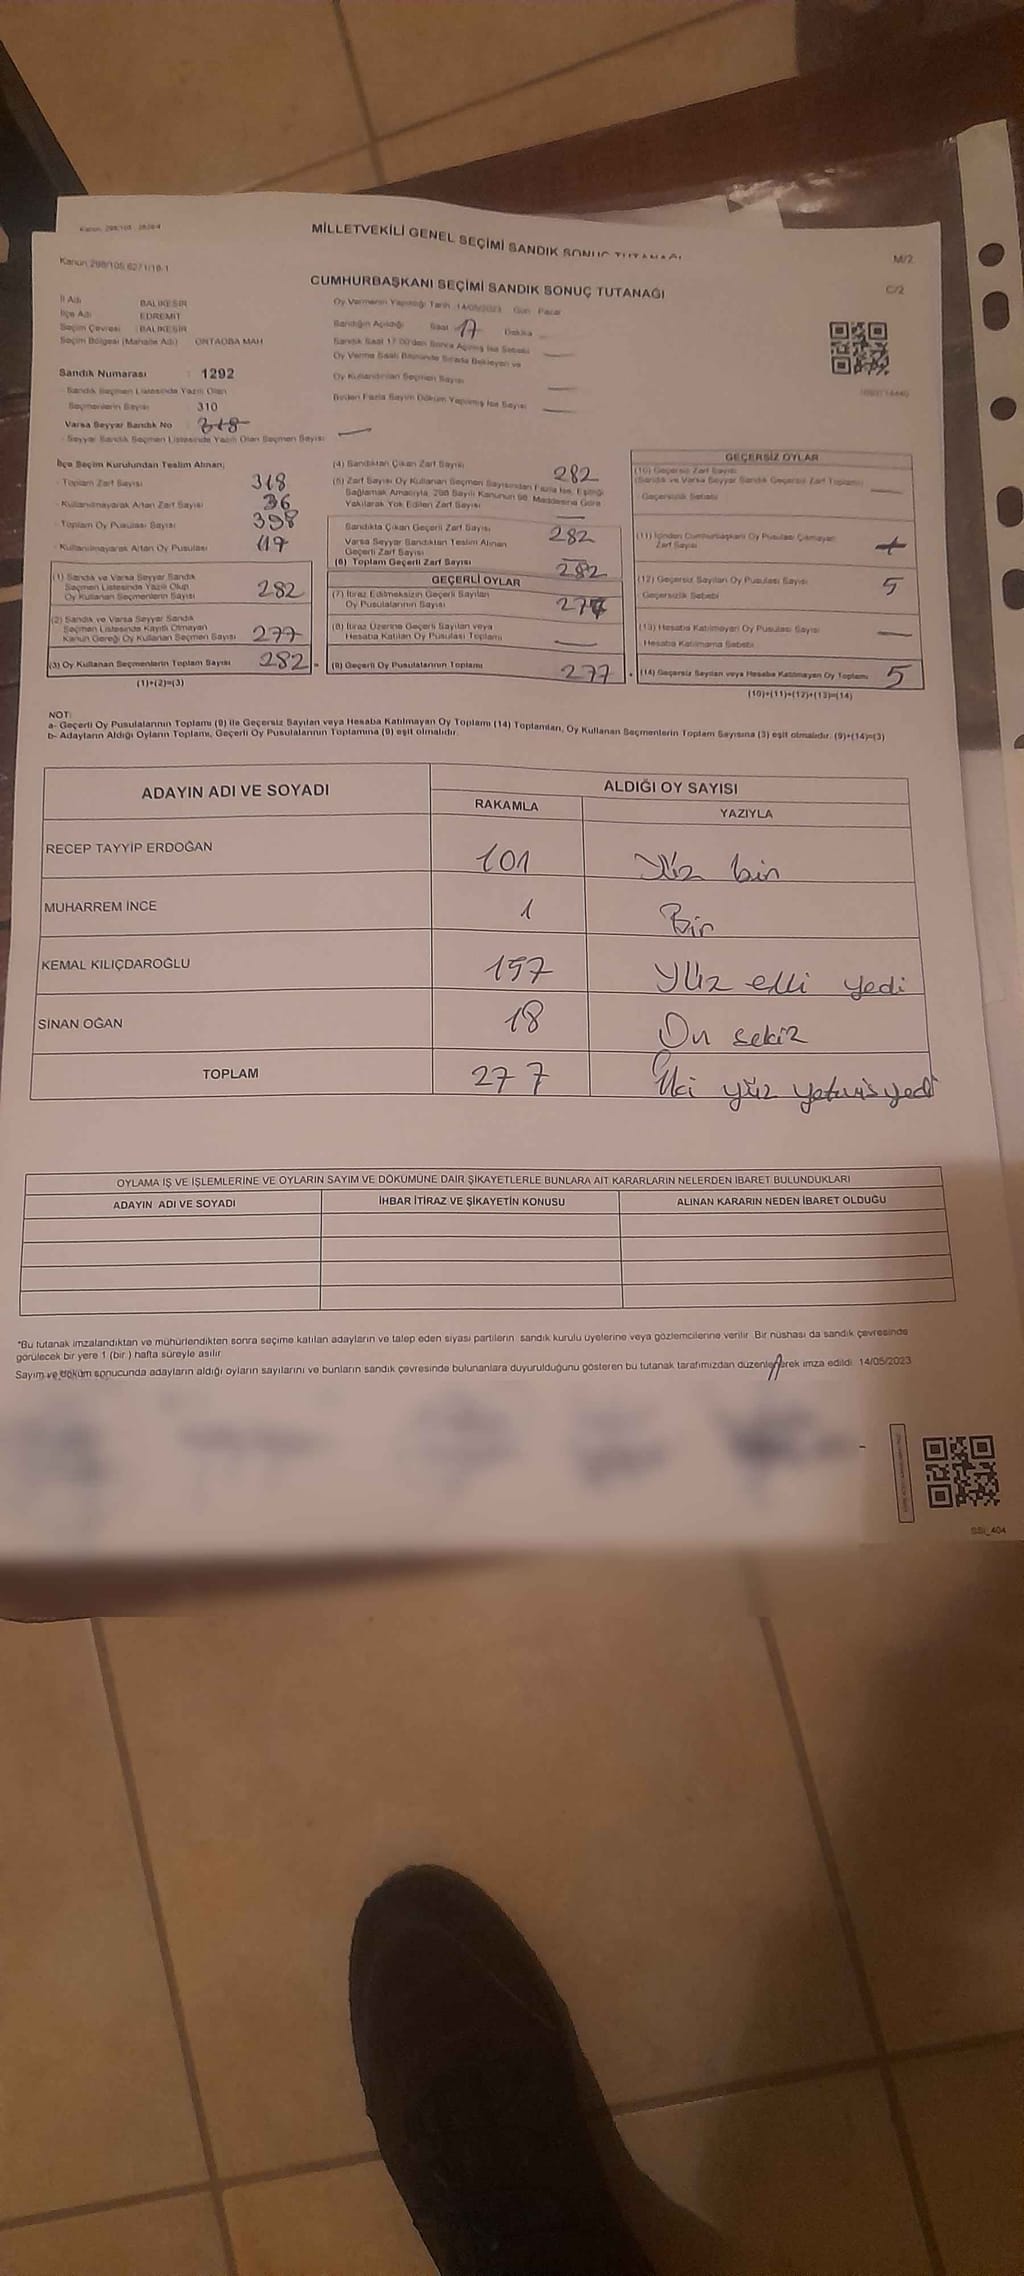 Kanun: 298/105
MİLLETVEKİLİ GENEL SEÇİMİ SANDIK SONUÇ TUTANAĞI
M/2
Kanun 298/105
CUMHURBAŞKANI SEÇİMİ SANDIK SONUÇ TUTANAĞI
C/2
İl Adı BALIKESİR
İlçe Adı EDREMİT
Seçim Çevresi : BALIKESİR
Seçim Bölgesi (Mahalle Adı) ORTAOBA MAH
Sandık Numarası : 1292
Sandık Seçmen Listesinde Yazılı Olan
Seçmenlerin Sayısı 310
Varsa Seyyar Sandık No 318
Seyyar Sandık Seçmen Listesinde Yazılı Olan Seçmen Sayısı
Oy Vermenin Yapıldığı Tarih :14/05/2023 Gün Pazar
Sandığın Açıldığı Saat 17 Dakika
Sandık Saat 17.00'den Sonra Açılmış İse Sebebi
Oy Verme Saati Bitiminde Sırada Bekleyen ve
Oy Kullandırılan Seçmen Sayısı
Birden Fazla Sayım Döküm Yapılmış İse Sayısı
İlçe Seçim Kurulundan Teslim Alınan;
Toplam Zarf Sayısı 318
Kullanılmayarak Artan Zarf Sayısı 36
Toplam Oy Pusulası Sayısı 398
Kullanılmayarak Artan Oy Pusulası 117
(1) Sandık ve Varsa Seyyar Sandık
Seçmen Listesinde Yazılı Olup
Oy Kullanan Seçmenlerin Sayısı 282
(2) Sandık ve Varsa Seyyar Sandık
Seçmen Listesinde Kayıtlı Olmayan
Kanun Gereği Oy Kullanan Seçmen Sayısı 277
(3) Oy Kullanan Seçmenlerin Toplam Sayısı 282
(1)+(2)=(3)
(4) Sandıktan Çıkan Zarf Sayısı 282
(5) Zarf Sayısı Oy Kullanan Seçmen Sayısından Fazla İse, Eşitliği
Sağlamak Amacıyla, 298 Sayılı Kanunun 98. Maddesine Göre
Yakılarak Yok Edilen Zarf Sayısı
Sandıkta Çıkan Geçerli Zarf Sayısı 282
Varsa Seyyar Sandıktan Teslim Alınan
Geçerli Zarf Sayısı
(6) Toplam Geçerli Zarf Sayısı 282
GEÇERLİ OYLAR
(7) İtiraz Edilmeksizin Geçerli Sayılan
Oy Pusulalarının Sayısı 277
(8) İtiraz Üzerine Geçerli Sayılan veya
Hesaba Katılan Oy Pusulası Toplamı
(9) Geçerli Oy Pusulalarının Toplamı 277
GEÇERSİZ OYLAR
(10) Geçersiz Zarf Sayısı
(Sandık ve Varsa Seyyar Sandık Geçersiz Zarf Toplamı)
Geçersizlik Sebebi
(11) İçinden Cumhurbaşkanı Oy Pusulası Çıkmayan
Zarf Sayısı
(12) Geçersiz Sayılan Oy Pusulası Sayısı 5
Geçersizlik Sebebi
(13) Hesaba Katılmayan Oy Pusulası Sayısı
Hesaba Katılmama Sebebi
(14) Geçersiz Sayılan veya Hesaba Katılmayan Oy Toplamı 5
(10)+(11)+(12)+(13)=(14)
NOT:
a- Geçerli Oy Pusulalarının Toplamı (9) ile Geçersiz Sayılan veya Hesaba Katılmayan Oy Toplamı (14) Toplamları, Oy Kullanan Seçmenlerin Toplam Sayısına (3) eşit olmalıdır. (9)+(14)=(3)
b- Adayların Aldığı Oyların Toplamı, Geçerli Oy Pusulalarının Toplamına (9) eşit olmalıdır.
ADAYIN ADI VE SOYADI ALDIĞI OY SAYISI
RAKAMLA YAZIYLA
RECEP TAYYİP ERDOĞAN 101 Yüz bin
MUHARREM İNCE 1 Bir
KEMAL KILIÇDAROĞLU 157 Yüz elli yedi
SİNAN OĞAN 18 On sekiz
TOPLAM 277 İki yüz yetmiş yedi
OYLAMA İŞ VE İŞLEMLERİNE VE OYLARIN SAYIM VE DÖKÜMÜNE DAİR ŞİKAYETLERLE BUNLARA AİT KARARLARIN NELERDEN İBARET BULUNDUKLARI
ADAYIN ADI VE SOYADI İHBAR İTİRAZ VE ŞİKAYETİN KONUSU ALINAN KARARIN NEDEN İBARET OLDUĞU
*Bu tutanak imzalandıktan ve mühürlendikten sonra seçime katılan adayların ve talep eden siyasi partilerin sandık kurulu üyelerine veya gözlemcilerine verilir. Bir nüshası da sandık çevresinde
görülecek bir yere 1 (bir) hafta süreyle asılır.
Sayım ve döküm sonucunda adayların aldığı oyların sayılarını ve bunların sandık çevresinde bulunanlara duyurulduğunu gösteren bu tutanak tarafımızdan düzenlenerek imza edildi. 14/05/2023
SSİ_404